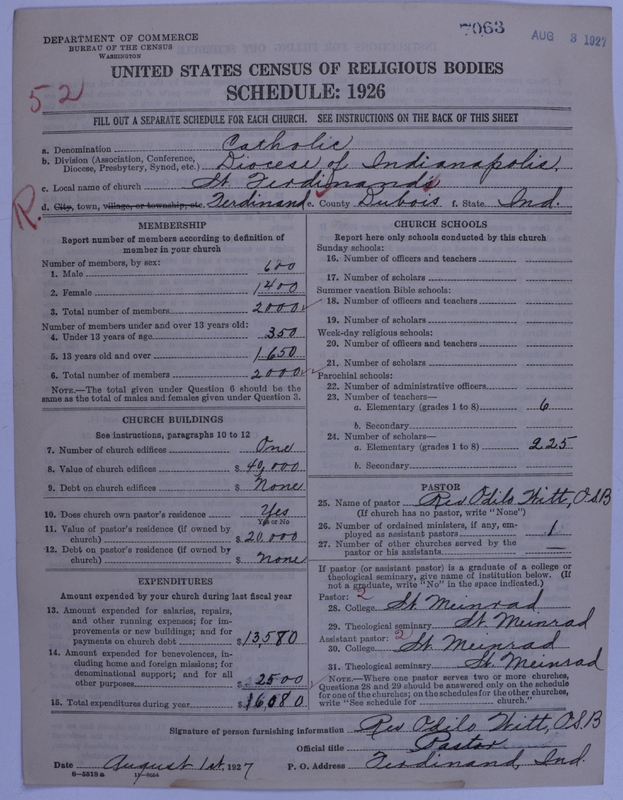 DEPARTMENT OF COMMERCE
BUREAU OF THE CENSUS
WASHINGTON
7063
AUG 3 1927
UNITED STATES CENSUS OF RELIGIOUS BODIES
SCHEDULE: 1926
52
FILL OUT A SEPARATE SCHEDULE FOR EACH CHURCH. SEE INSTRUCTIONS ON THE BACK OF THIS SHEET
a. Denomination Catholic
b. Division (Association, Conference, Diocese of Indianapolis.
Diocese, Presbytery, Synod, etc.)
c. Local name of church St. Ferdinands
R.
d. City, town, village, or township, etc. Ferdinand e. County Dubois f. State Ind.
MEMBERSHIP
Report number of members according to definition of
member in your church
Number of members, by sex:
1. Male 600
2. Female 1400
3. Total number of members 2000
Number of members under and over 13 years old:
4. Under 13 years of age 350
5. 13 years old and over 1650
6. Total number of members 2000
NOTE.—The total given under Question 6 should be the
same as the total of males and females given under Question 3.
CHURCH BUILDINGS
See instructions, paragraphs 10 to 12
7. Number of church edifices One
8. Value of church edifices $ 40,000
9. Debt on church edifices $ None
10. Does church own pastor's residence Yes
Yes or No
11. Value of pastor's residence (if owned by
church) $ 20,000
12. Debt on pastor's residence (if owned by
church) $ None
EXPENDITURES
Amount expended by your church during last fiscal year
13. Amount expended for salaries, repairs,
and other running expenses; for im-
provements or new buildings; and for
payments on church debt $ 13,580
14. Amount expended for benevolences, in-
cluding home and foreign missions; for
denominational support; and for all
other purposes $ 2500
15. Total expenditures during year $ 16080
CHURCH SCHOOLS
Report here only schools conducted by this church
Sunday schools:
16. Number of officers and teachers
17. Number of scholars
Summer vacation Bible schools:
18. Number of officers and teachers
19. Number of scholars
Week-day religious schools:
20. Number of officers and teachers
21. Number of scholars
Parochial schools:
22. Number of administrative officers
23. Number of teachers—
a. Elementary (grades 1 to 8) 6
b. Secondary
24. Number of scholars—
a. Elementary (grades 1 to 8) 225
b. Secondary
PASTOR
25. Name of pastor Rev Odilo Witt, O.S.B
(If church has no pastor, write "None")
26. Number of ordained ministers, if any, em-
ployed as assistant pastors 1
27. Number of other churches served by the
pastor or his assistants —
If pastor (or assistant pastor) is a graduate of a college or
theological seminary, give name of institution below. (If
not a graduate, write "No" in the space indicated.)
Pastor: 2
28. College St Meinrad
29. Theological seminary St Meinrad
Assistant pastor: 2
30. College St Meinrad
31. Theological seminary St. Meinrad
NOTE.—Where one pastor serves two or more churches,
Questions 28 and 29 should be answered only on the schedule
for one of the churches; on the schedules for the other churches,
write "See schedule for church."
Signature of person furnishing information Rev Odilo Witt, O.S.B
Official title Pastor
Date August 1st, 1927 P. O. Address Ferdinand, Ind.
8—5318 a 11—9024